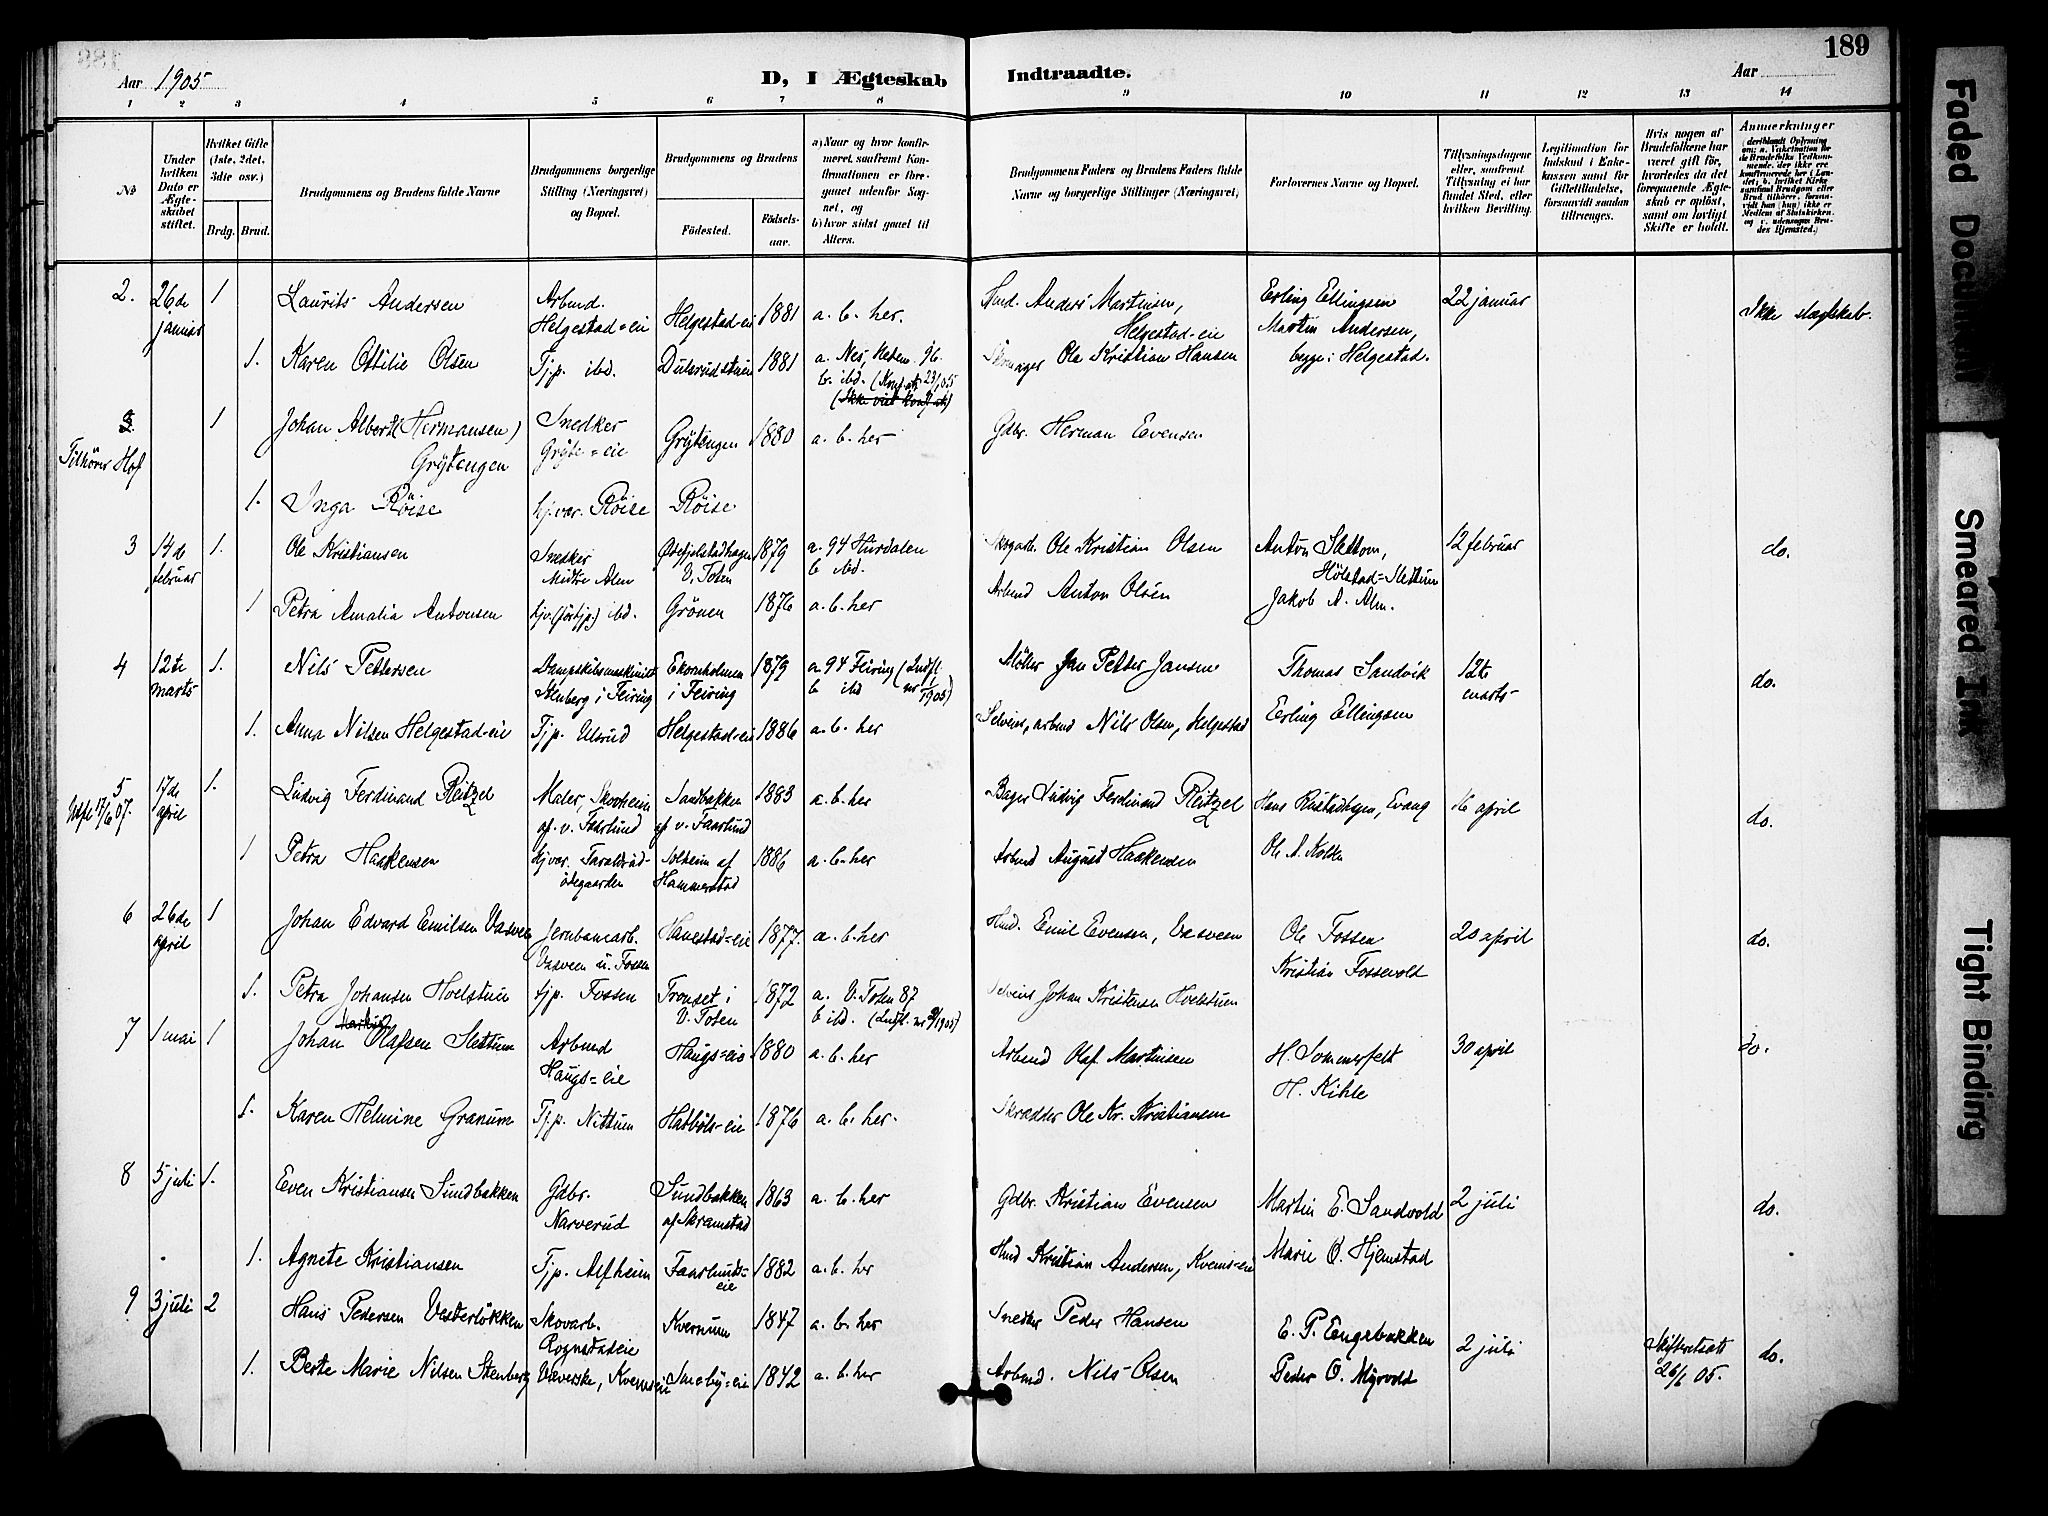 189
Aar 1905
D, I Ægteskab
Indtraadte.
Aar
1 2 3 4 5 6 7 8 9 10 11 12 13 14
No
Under hvilken Dato er Ægteskabet stiftet.
Hvilket Gifte (1ste, 2det, 3dte osv.)
Brdg. Brud.
Brudgommens og Brudens fulde Navne
Brudgommens borgerlige Stilling (Næringsvei) og Bopæl.
Brudgommens og Brudens
Fødested.
Fødselsaar.
a) Naar og hvor konfirmeret, saafremt Konfirmationen er foregaaet udenfor Sognet, og
b) hvor sidst gaaet til Alters.
Brudgommens Faders og Brudens Faders fulde Navne og borgerlige Stillinger (Næringsvei)
Forlovernes Navne og Bopæl.
Tillysningsdagene eller, saafremt Tillysning ei har fundet Sted, efter hvilken Bevilling.
Legitimation for Indskud i Enkekassen samt for Giftetilladelse, forsaavidt saadan tiltrænges.
Hvis nogen af Brudefolkene har været gift før, hvorledes da det foregaaende Ægteskab er opløst, samt om lovligt Skifte er holdt.
Anmerkninger
2. 26de januar 1 Laurits Andersen Arbmd. Helgestad=eie Helgestad-eie 1881 a. b. her. Anders Martinsen, Helgestad=eie Erling Ellingsen Martin Andersen, begge: Helgestad. 22 januar Ikke slægtskab.
1. Karen Ottilie Olsen Tj.p. ibd. 1881 a. Nes, Hedem. 96. b. ibd. Ole Kristian Hansen
Tilhører Hof 1 Johan Albert (Hermansen) Grytengen Snedker Gryte=eie Grytengen 1880 a. b. her Gdbr. Herman Evensen
1. Inga Röise hj.var. Röise Röise
3 14de februar 1. Ole Kristiansen Snedker Midtre Alm V. Toten 1879 a. 94 Hurdalen b. ibd. Ole Kristian Olsen Anton Slettom, Jakob A. Alm. 12 februar do.
1 Petra Amalia Antonsen ibd. Grönen 1876 a. b. her Arbmd Anton Olsen
4 12te marts 1. Nils Pettersen Stenberg i Feiring Ekornholmen i Feiring 1879 a. 94 Feiring b ibd 1905) Møller Jan Petter Jansen Thomas Sandvik Erling Ellingsen 12te marts do.
1. Anna Nilsen Helgestad-eie Tj.p. Ulsrud Helgestad-eie 1886 a. b. her arbmd Nils Olsen, Helgestad
5 17de april 1. Ludvig Ferdinand Reitzel Maler, Skovheim af v. Faarlund Sandbakken af v. Faarlund 1883 a. b. her Bager Ludvig Ferdinand Reitzel Hans Rustadhagen, Evang Ole A. Kolbu 16 april do.
17/6 07.
1 Petra Haakensen hj.var. ödegaarden Solheim af Hammerstad 1886 a. b. her Arbmd August Haakensen
6 26de april 1 Johan Edvard Emilsen Vasveen Jernbanearb. Vasveen u. Fossen Hanestad=eie 1877. a. b. her Hmd. Emil Evensen, Vasveen Ole Fossen Kristian Fossevold 20 april do.
1. Petra Johansen Hoelstuen tj.p. Fossen i V. Toten 1872 a. V. Toten 87 b ibd. Johan Kristensen Hoelstuen
7 1 mai 1 Johan Olafsen Slettum Arbmd Haugs=eie Haugs=eie 1880 a. b. her Arbmd Olaf Martinsen H. Sommerfelt H. Kihle 30 april do.
1. Karen Helmine Granum Tj.p. Nittum Hatböls-eie 1876 a. b. her. Skrædder Ole Kr. Kristiansen
8 5 juli 1. Even Kristiansen Sundbakken Gdbr. Narverud Sundbakken af Skramstad 1863 a. b. her Gdbr. Kristian Evensen Martin E. Sandvold Marie O. Hjemstad 2 juli do.
1. Agnete Kristiansen Tj.p. Alfheim Faarlunds=eie 1882 a. b. her Hmd Kristian Andersen, Kvems-eie
9 3 juli 2 Hans Pedersen Vesterløkken Skovarb. Rognstadeie Kvernum 1847 a. b. her Snedker Peder Hansen E. P. Engebakken Peder O. Myrvold 2 juli Skifteretsatt 26/6 05. do.
1. Berte Marie Nilsen Stenberg Væverske, Sneby=eie 1842 a. b. her Arbmd. Nils Olsen
Faded Document
Smeared Ink
Tight Binding